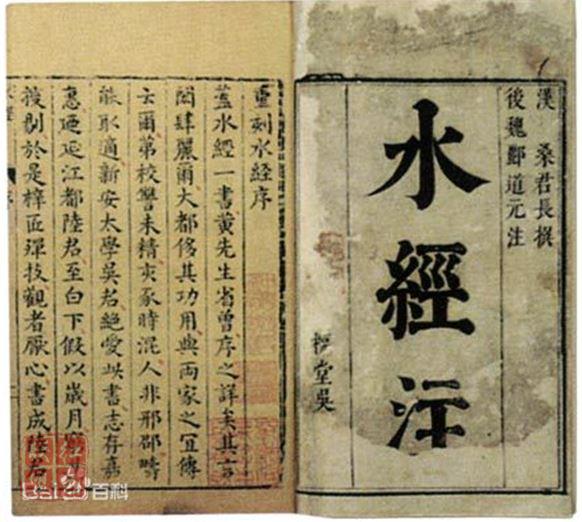 漢 桑君長撰
後魏酈道元注
水經注
堂吳
重刻水經序
蓋水經一書黄先生省曾序之詳矣其言
閎肆麗爾大都侈其功用與兩家之宜傳
云爾第校讐未精亥豕時混人非邢邵疇
能取適新安太學吳君絶愛此書志存嘉
惠迺延江都陸君至白下假以歲月
搜剔於是梓匠殫技觀者厭心書成陸君
Bai 百科